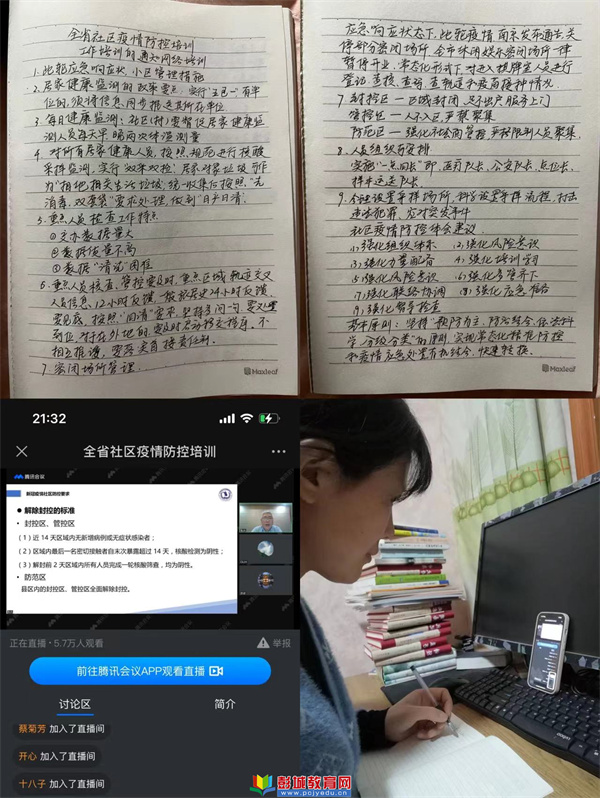 全省社区疫情防控培训
工作培训的通知网络培训
1. 此轮应急响应状,小区管理措施
2. 居家健康监测的政策要点,实行"五包一"有单
位的,须将信息同步报送其所在单位
3. 每日健康监测:社区(村)要督促居家健康监
测人员每天早晚两次体温测量
4. 对所有居家健康人员,按照规范进行核酸
采样监测,实行"双采双检"居家对象垃圾等作
消毒,双套袋"要求处理,做到"日产日清"。
5. 重点人员检查工作特点
①交办数据量大
②数据质量不高
③数据"清洗"困难
人员信息,12小时反馈,
相互推诿,要落实首接责任制。
7. 密闭场所管理。
应急响应状态下,此轮疫情南京发布通告关
停部分密闭场所,全市休闲娱乐密闭场所一律
暂停开业,常态化形式下对进入棋牌室人员进行
登记、查验、查询、查频道和疫苗接种情况
7. 封控区—区域封闭 足不出户服务上门
管控区—人不入区,严禁聚集
防范区—强化社会面管控,严格限制人员聚集
8. 人员组织与安排
实施"一点四长"即,医疗队长,公安队长,点位长,
样本运送队长
9. 合理设置采样场所,科学设置采样流程,打击
违法犯罪,应对突发事件
社区疫情防控体会建议
(1)强化组织体系 (2)强化风险意识
(3)强化力量配备 (4)强化培训学习
(5)强化风险意识 (6)强化多管齐下
(7)强化联络协调 (8)强化应急准备
(9)强化督导检查
基本原则:坚持"预防为主、防治结合、依法科
学、分级分类"的原则,实现常态化精准防控
和疫情应急处置有机结合,快速转换。
Maxleaf
Maxleaf
21:32
全省社区疫情防控培训
腾讯会议
新冠疫情社区防控要求
解除封控的标准
封控区、管控区
(1)近 14 天区域内无新增病例或无症状感染者;
(2)区域内最后一名密切接触者自末次暴露超过 14 天,核酸检测为阴性;
(3)解封前 2 天区域内所有人员完成一轮核酸筛查,均为阴性。
防范区
县区内的封控区、管控区全面解除封控。
正在直播·5.7万人观看
举报
前往腾讯会议APP观看直播
讨论区 简介
蔡菊芳 加入了直播间
开心 加入了直播间
十八子 加入了直播间
彭城教育网
www.pcjyedu.cn